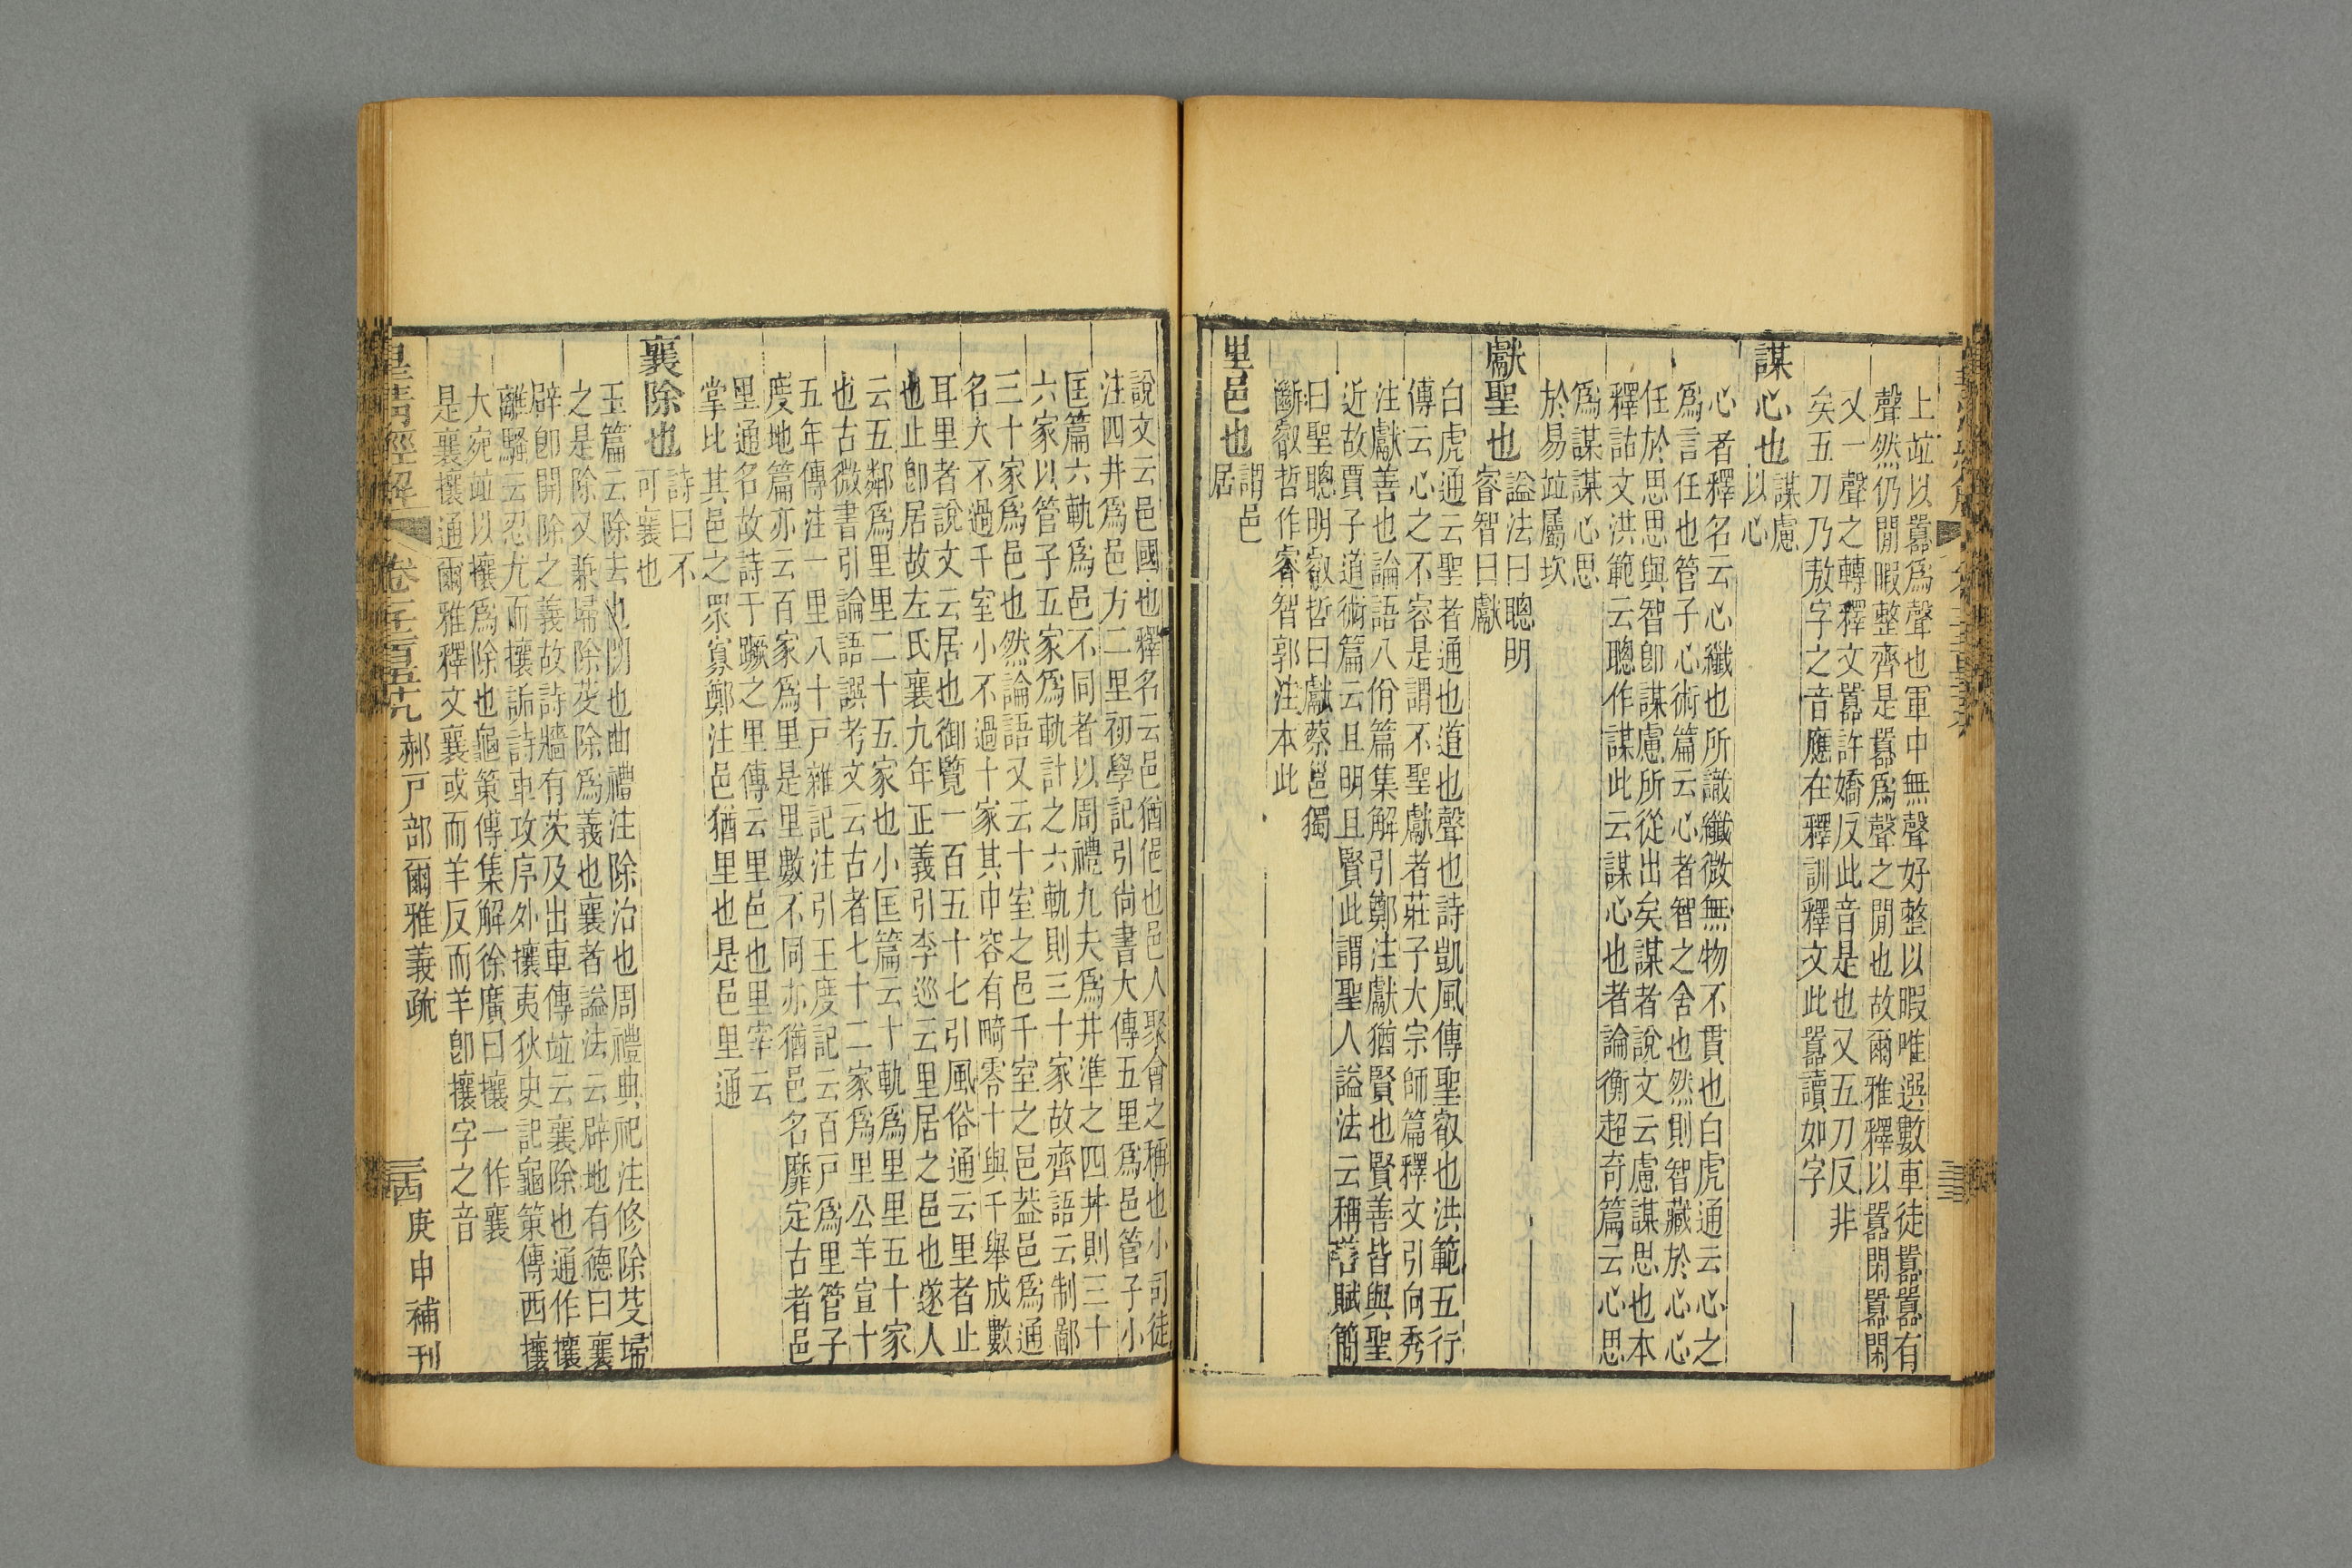 上竝以囂爲聲也軍中無聲好整以暇唯選數車徒囂囂有
聲然仍閒暇整齊是囂爲聲之閒也故爾雅釋以囂閑囂閑
又一聲之轉釋文囂許嬌反此音是也又五刀反非
矣五刀乃敖字之音應在釋訓釋文此囂讀如字
謀心也
謀慮
以心
心者釋名云心纖也所識纖微無物不貫也白虎通云心之
爲言任也管子心術篇云心者智之舍也然則智藏於心心
任於思思與智卽謀慮所從出矣謀者說文云慮謀思也本
釋詁文洪範云聰作謀此云謀心也者論衡超奇篇云心思
爲謀謀心思
於易竝屬坎
獻聖也
謚法曰聰明
睿智曰獻
白虎通云聖者通也道也聲也詩凱風傳聖叡也洪範五行
傳云心之不容是謂不聖獻者莊子大宗師篇釋文引向秀
注獻善也論語八佾篇集解引鄭注獻猶賢也賢善皆與聖
近故賈子道術篇云且明且賢此謂聖人謚法云稱善賦簡
曰聖聰明叡哲曰獻蔡邕獨
斷叡哲作睿智郭注本此
里邑也
謂邑
居
說文云邑國也釋名云邑猶俋也邑人聚會之稱也小司徒
注四井爲邑方二里初學記引尚書大傳五里爲邑管子小
匡篇六軌爲邑不同者以周禮九夫爲井準之四井則三十
六家以管子五家爲軌計之六軌則三十家故齊語云制鄙
三十家爲邑也然論語又云十室之邑千室之邑葢邑爲通
名大不過千室小不過十家其中容有畸零十與千舉成數
耳里者說文云居也御覽一百五十七引風俗通云里者止
也止卽居故左氏襄九年正義引李巡云里居之邑也遂人
云五鄰爲里里二十五家也小匡篇云十軌爲里里五十家
也古微書引論語譔考文云古者七十二家爲里公羊宣十
五年傳注一里八十戸雜記注引王度記云百戸爲里管子
度地篇亦云百家爲里是里數不同亦猶邑名靡定古者邑
里通名故詩于蹶之里傳云里邑也里宰云
掌比其邑之眾寡鄭注邑猶里也是邑里通
襄除也
詩曰不
可襄也
玉篇云除去也開也曲禮注除治也周禮典祀注修除芟埽
之是除又兼埽除芟除爲義也襄者謚法云辟地有德曰襄
辟卽開除之義故詩牆有茨及出車傳竝云襄除也通作攘
離騷云忍尤而攘詬詩車攻序外攘夷狄史記龜策傳西攘
大宛竝以攘爲除也龜策傳集解徐廣曰攘一作襄
是襄攘通爾雅釋文襄或而羊反而羊卽攘字之音
皇清經解 卷二百五十九 郝戸部爾雅義疏 三百 庚申補刊